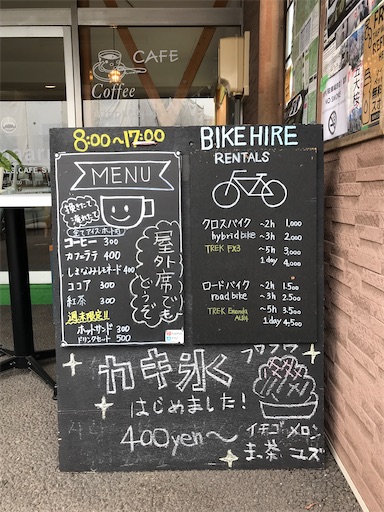 CAFE
Coffee
8:00〜17:00
MENU
挽きたて
淹れたて
全てアイス・ホット可
コーヒー 300
カフェラテ 400
しまなみレモネード 400
ココア 300
紅茶 300
週末限定!!
ホットサンド 300
ドリンクセット 500
屋外席でも
どうぞ
BIKE HIRE
RENTALS
クロスバイク 〜2h 1,000
hybrid bike 〜3h 2,000
TREK FX3 〜5h 3,000
1day 4,000
ロードバイク 〜2h 1,500
road bike 〜3h 2,500
TREK Emonda 〜5h 3,500
ALR4 1day 4,500
カキ氷
フワフワ
はじめました!
400yen〜
イチゴ メロン
まっ茶 ユズ